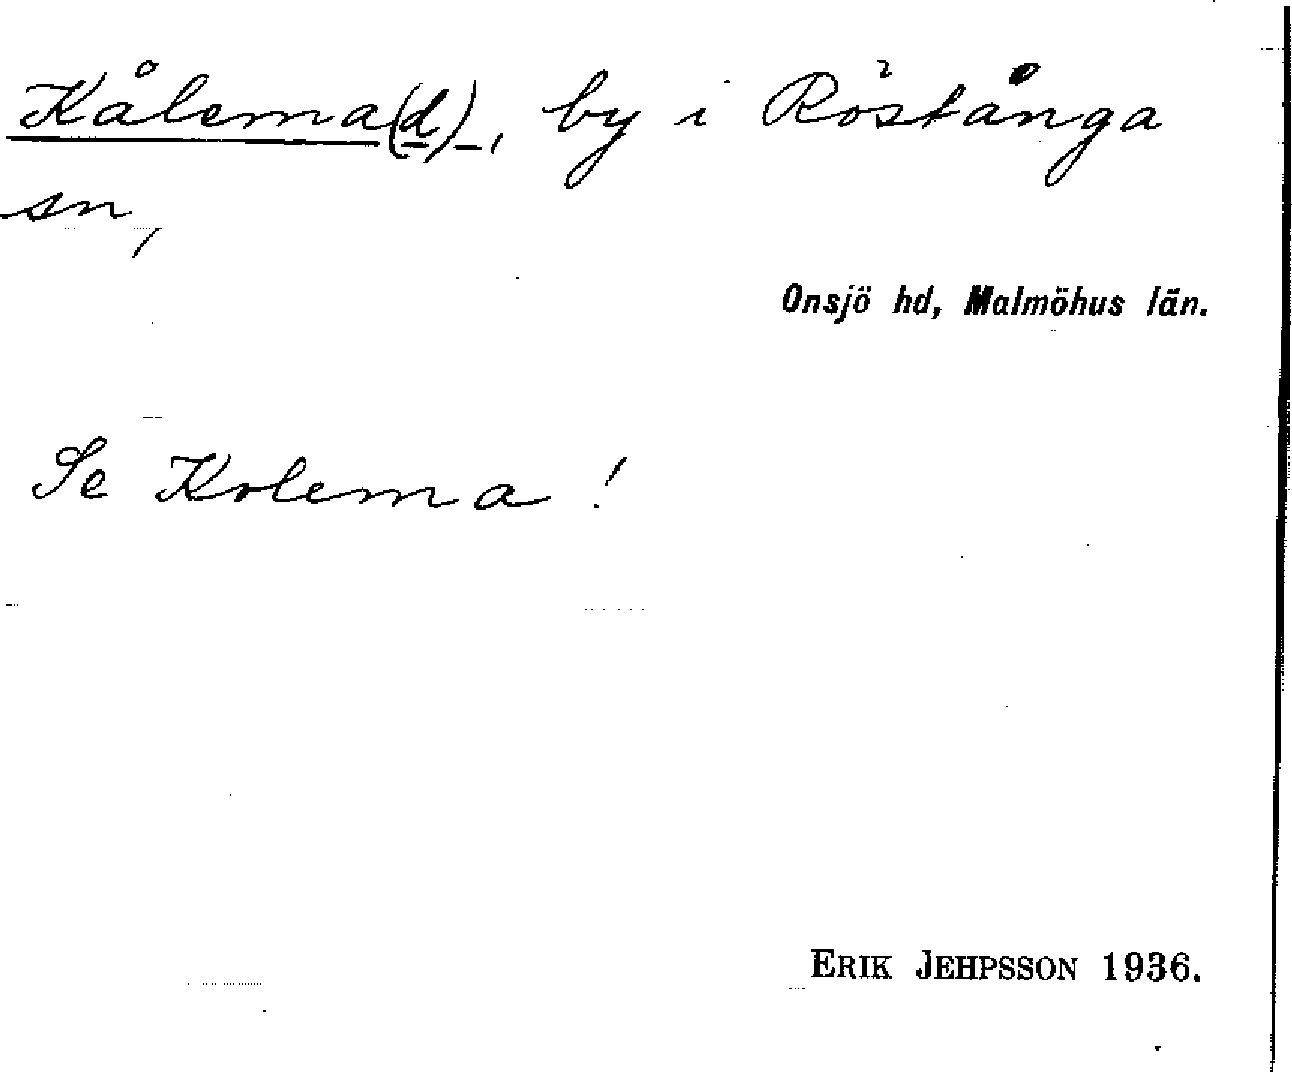 Kålema(d), by i Röstånga
sn,
Onsjö hd, Malmöhus län.
Se Kolema!
ERIK JEHPSSON 1936.